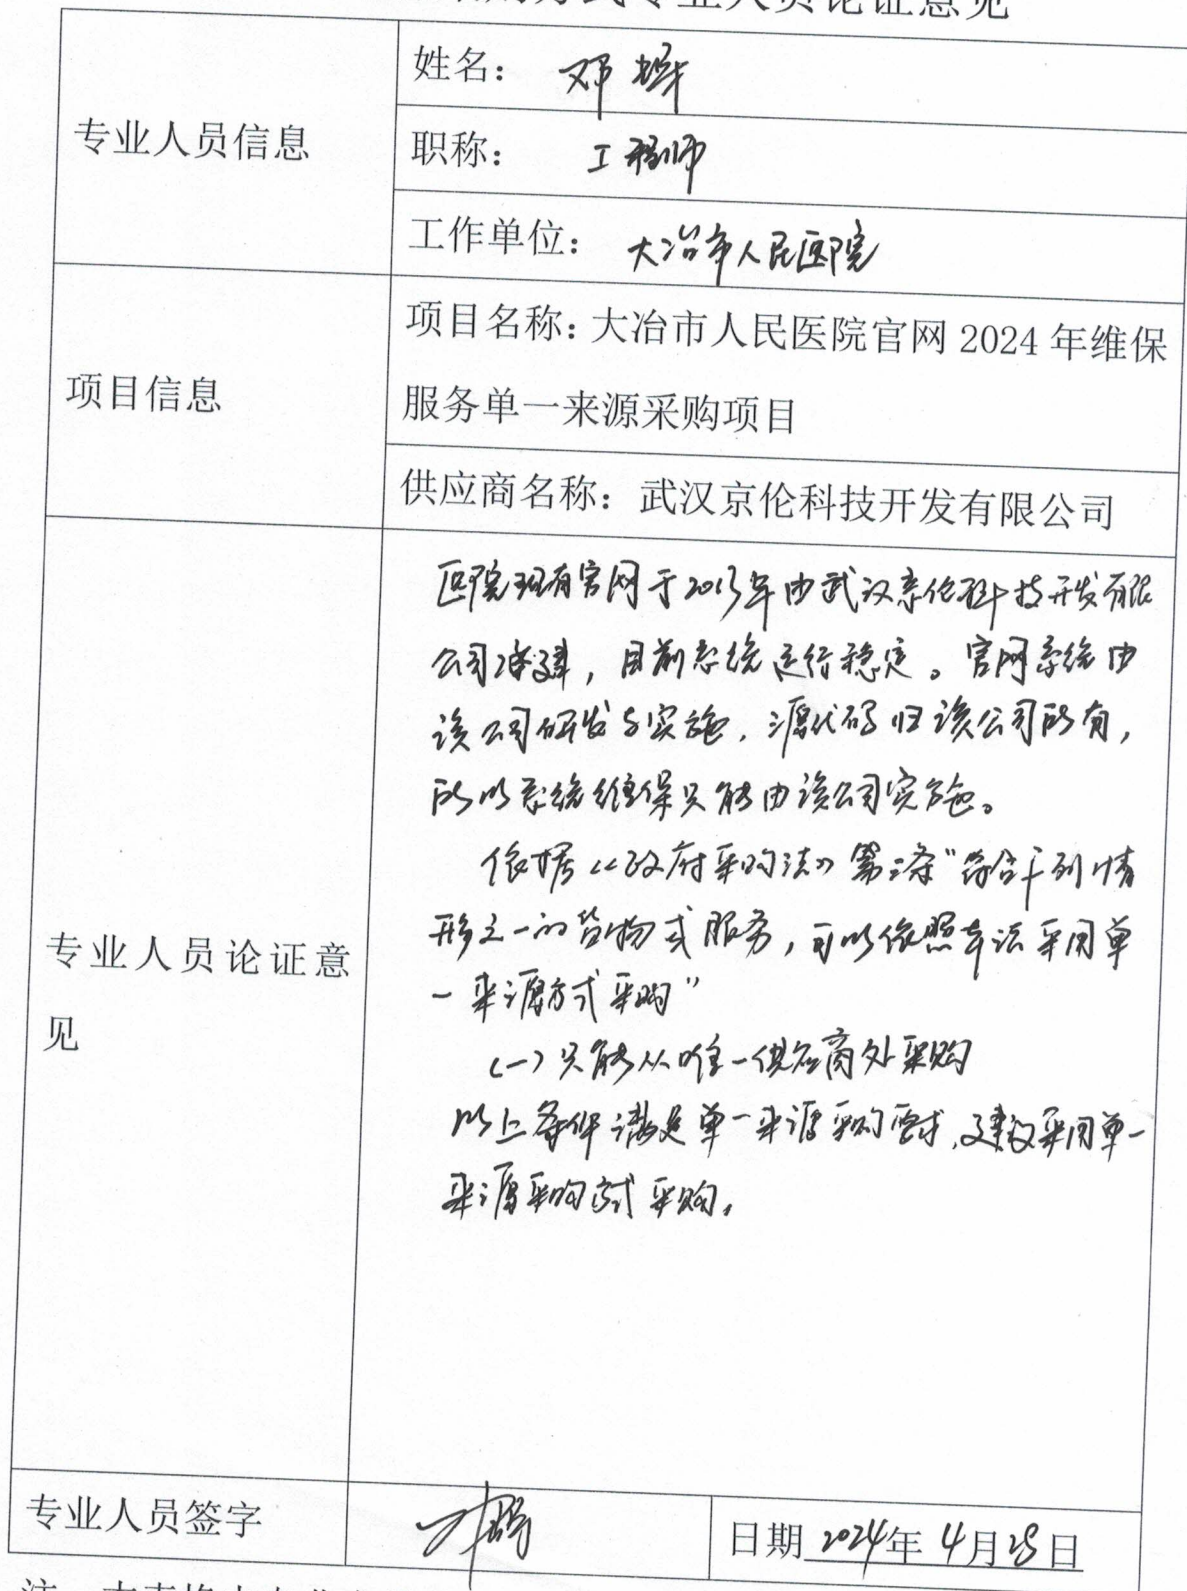 专业人员论证意见
专业人员信息
姓名： 邓
职称： 工程师
工作单位： 大冶市人民医院
项目信息
项目名称：大冶市人民医院官网 2024 年维保
服务单一来源采购项目
供应商名称：武汉京伦科技开发有限公司
专业人员论证意
见
医院现有官网于2013年由武汉京伦科技开发有限
公司承建，目前系统运行稳定。官网系统由
该公司研发与实施，源代码归该公司所有，
所以系统维保只能由该公司实施。
依据《政府采购法》第 条“符合下列情
形之一的货物或服务，可以依照本法采用单
一来源方式采购”
（一）只能从唯一供应商处采购
以上条件满足单一来源采购要求，建议采用单一
来源采购方式采购。
专业人员签字
日期 2024年 4月28日